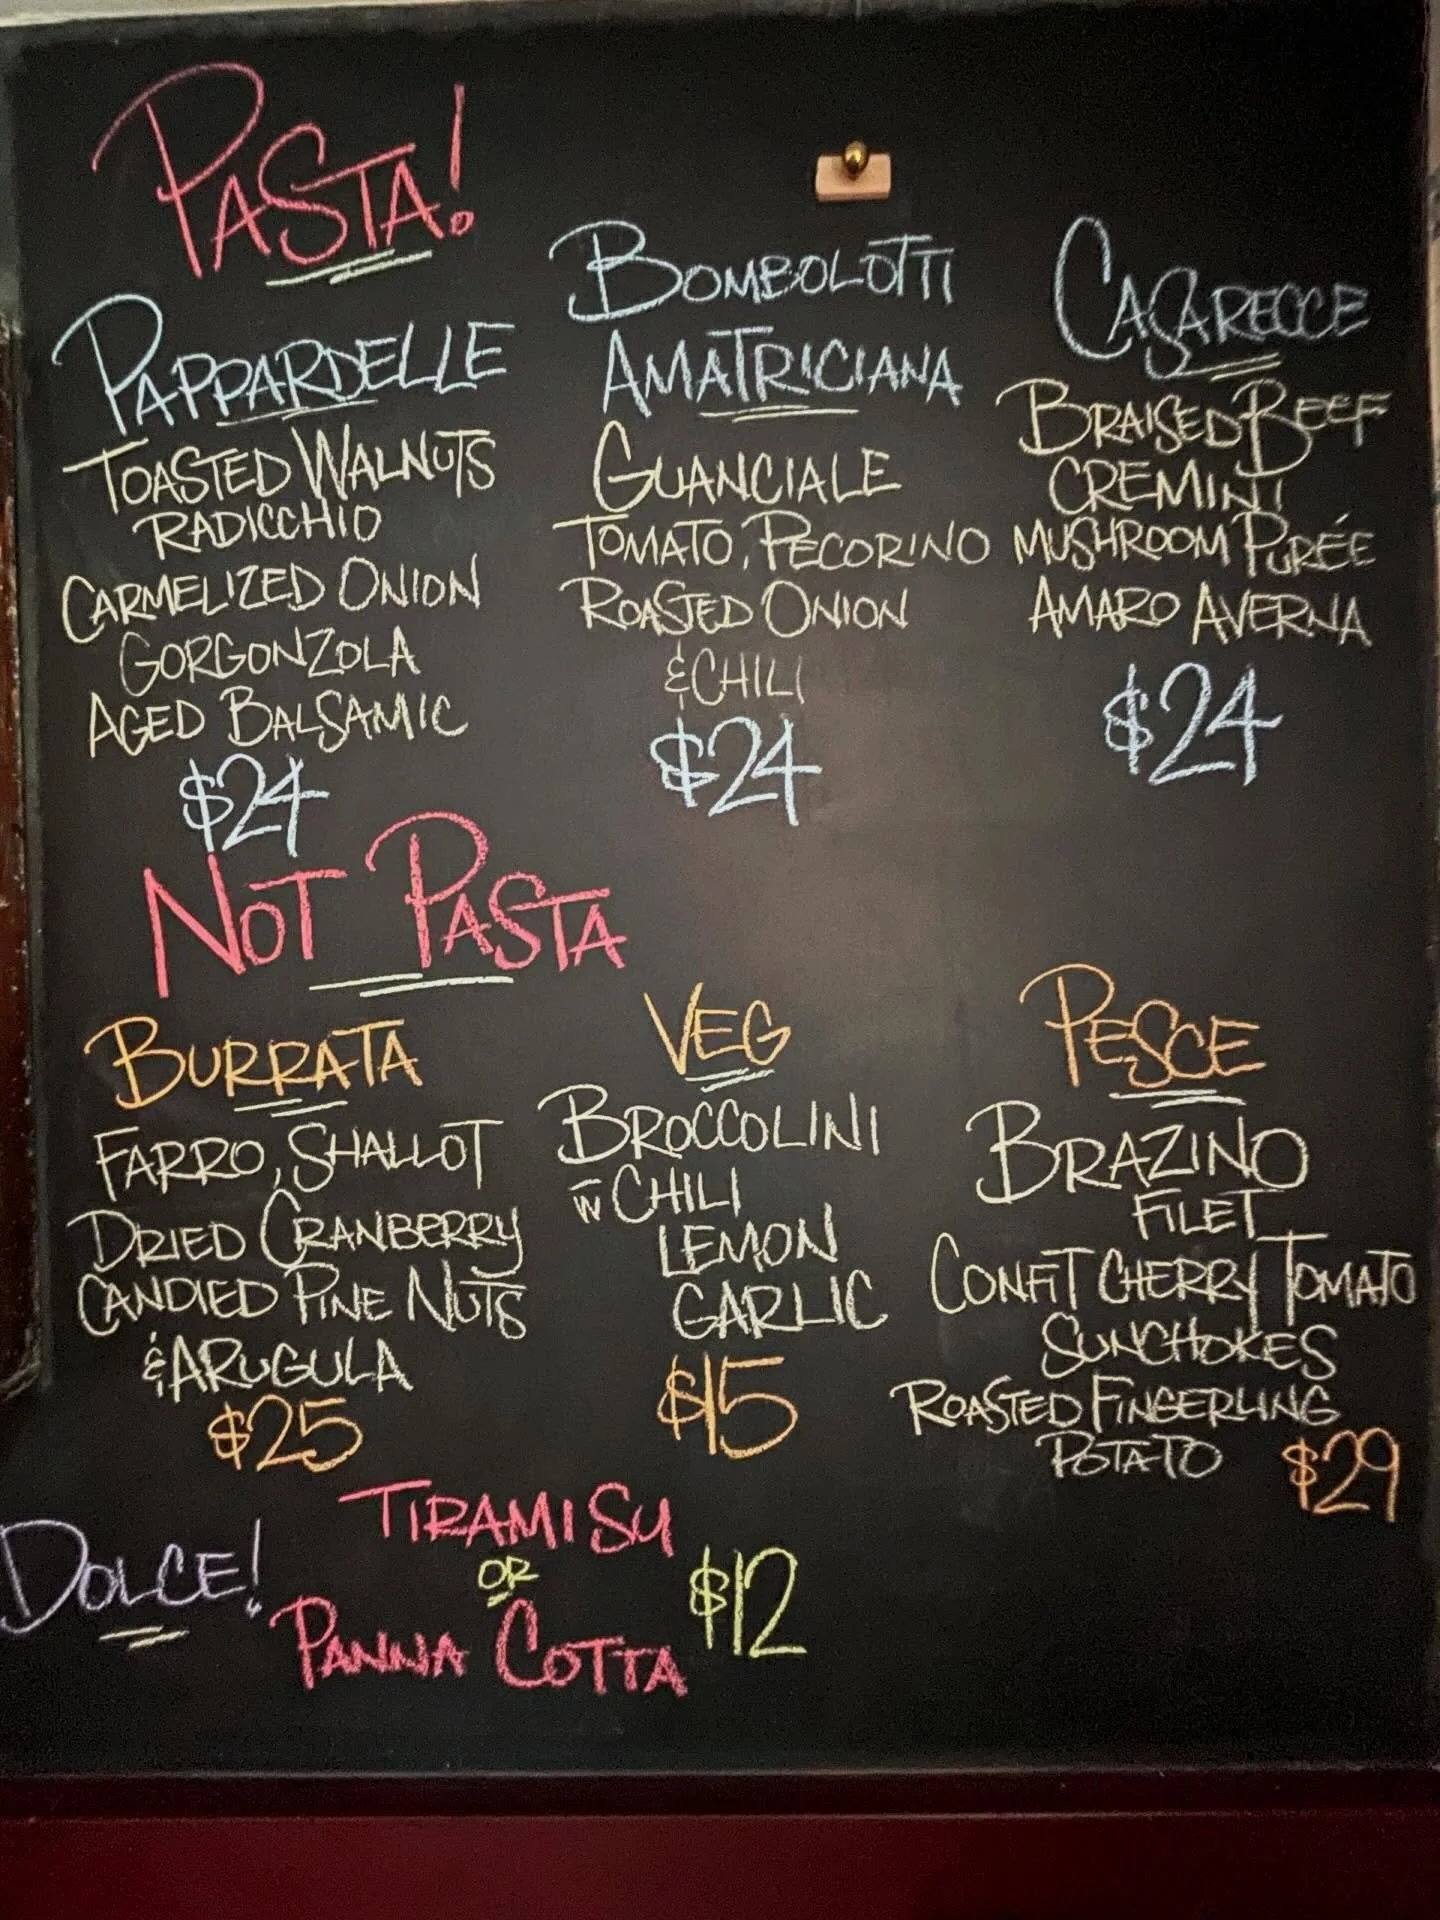 PASTA!
PAPPARDELLE
TOASTED WALNUTS
RADICCHIO
CARMELIZED ONION
GORGONZOLA
AGED BALSAMIC
$24
BOMBOLOTTI
AMATRICIANA
GUANCIALE
TOMATO, PECORINO
ROASTED ONION
& CHILI
$24
CASARECCE
BRAISED BEEF
CREMINI
MUSHROOM PURÉE
AMARO AVERNA
$24
NOT PASTA
BURRATA
FARRO, SHALLOT
DRIED CRANBERRY
CANDIED PINE NUTS
& ARUGULA
$25
VEG
BROCCOLINI
W CHILI
LEMON
GARLIC
$15
PESCE
BRAZINO
FILET
CONFIT CHERRY TOMATO
SUNCHOKES
ROASTED FINGERLING
POTATO $29
DOLCE!
TIRAMISU
OR
PANNA COTTA
$12